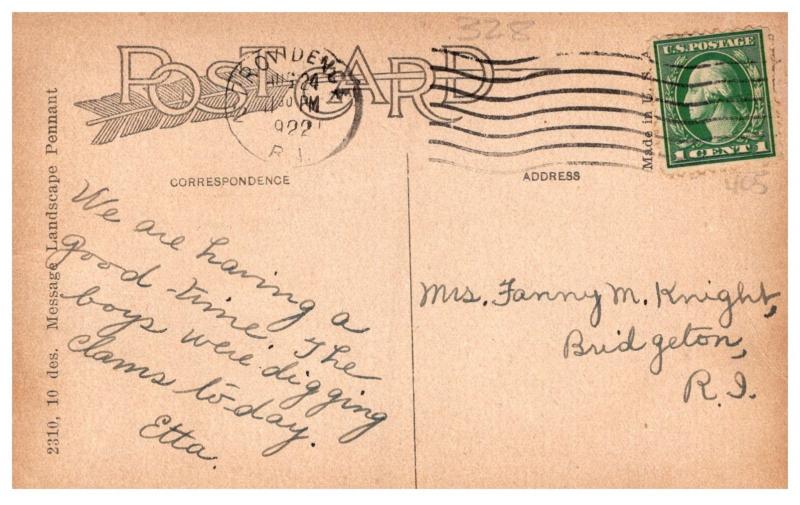 328
POST CARD
PROVIDENCE
AUG 24
30 PM
1922
R.I.
U.S. POSTAGE
1 CENT 1
405
Made in U.S.A
CORRESPONDENCE
ADDRESS
2310, 10 des. Message Landscape Pennant
We are having a
good-time. The
boys were digging
clams to-day.
Etta.
Mrs. Fanny M. Knight,
Bridgeton,
R.I.